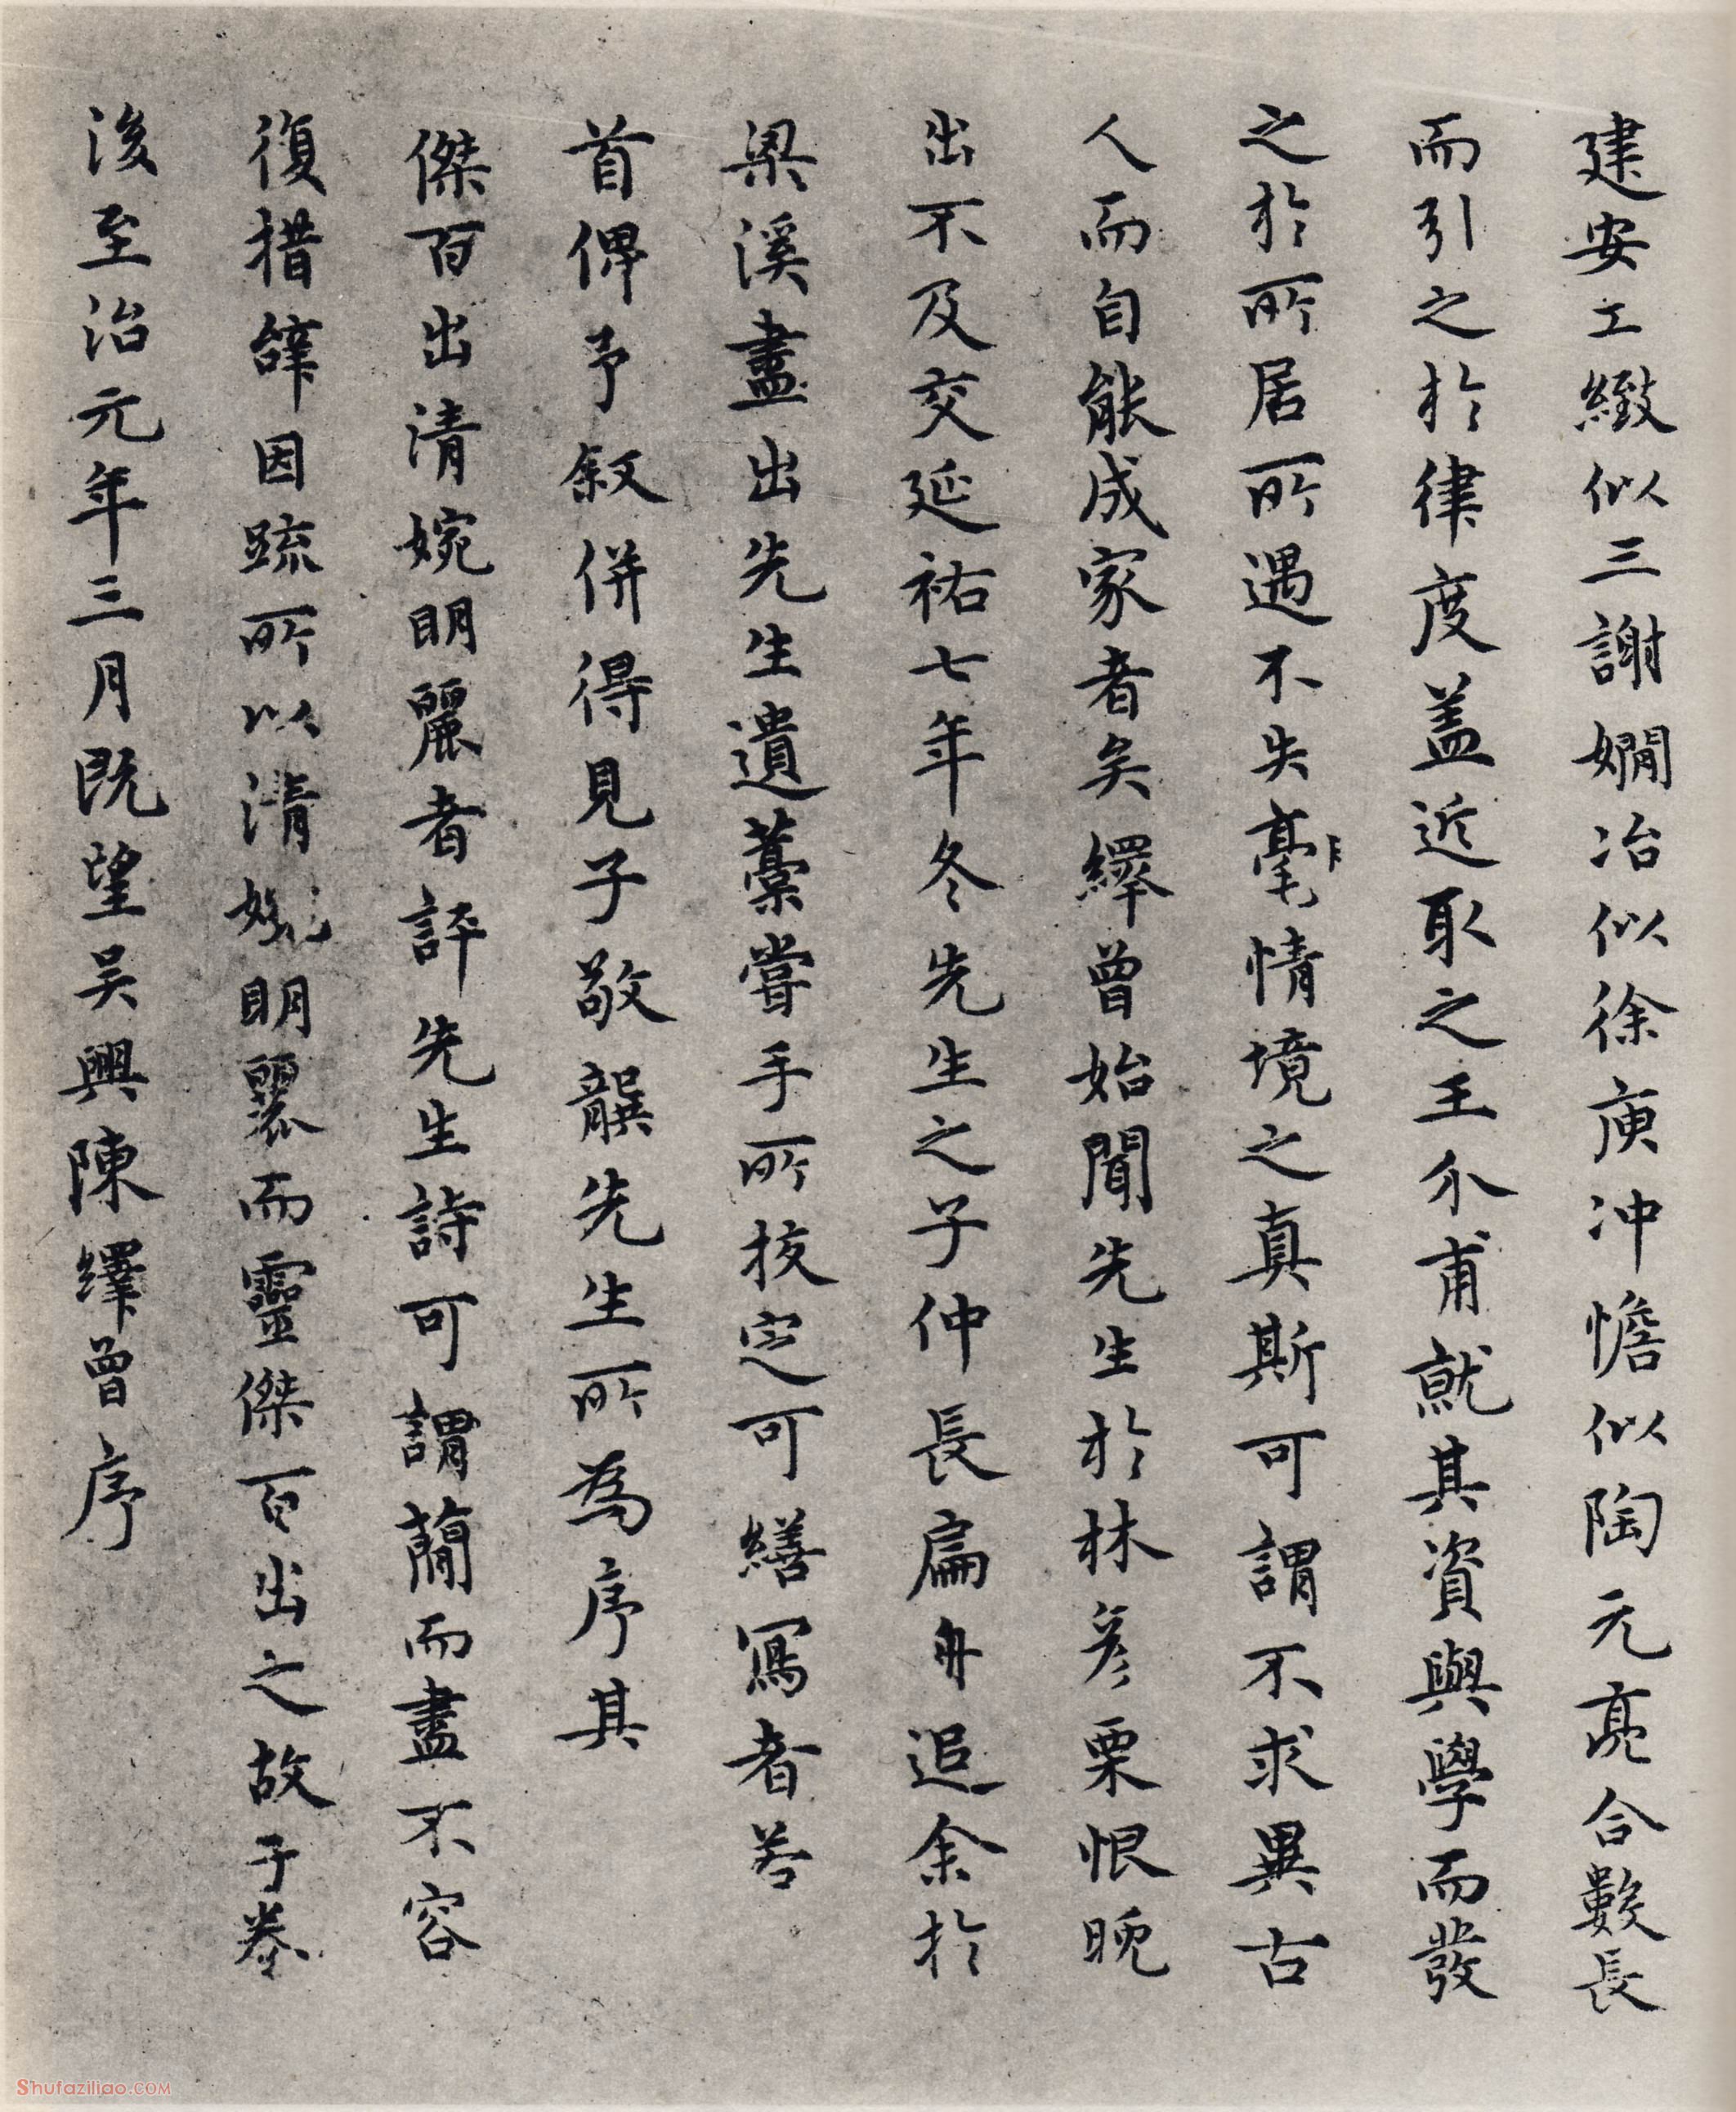 建安工緻似三謝嫺冶似徐庾冲憺似陶元亮合數長
而引之於律度盖近取之王介甫就其資與學而發
之於所居所遇不失毫情境之真斯可謂不求異古
人而自能成家者矣繹曾始聞先生於林彦栗恨晚
出不及交延祐七年冬先生之子仲長扁舟追余於
梁溪盡出先生遺藁嘗手所校定可繕寫者若
首俾予叙併得見子敬龔先生所為序其
傑百出清婉明麗者評先生詩可謂蕳而盡不容
復措辭因疏所以清婉明麗而靈傑百出之故于卷
後至治元年三月既望吴興陳繹曾序
Shufaziliao.COM